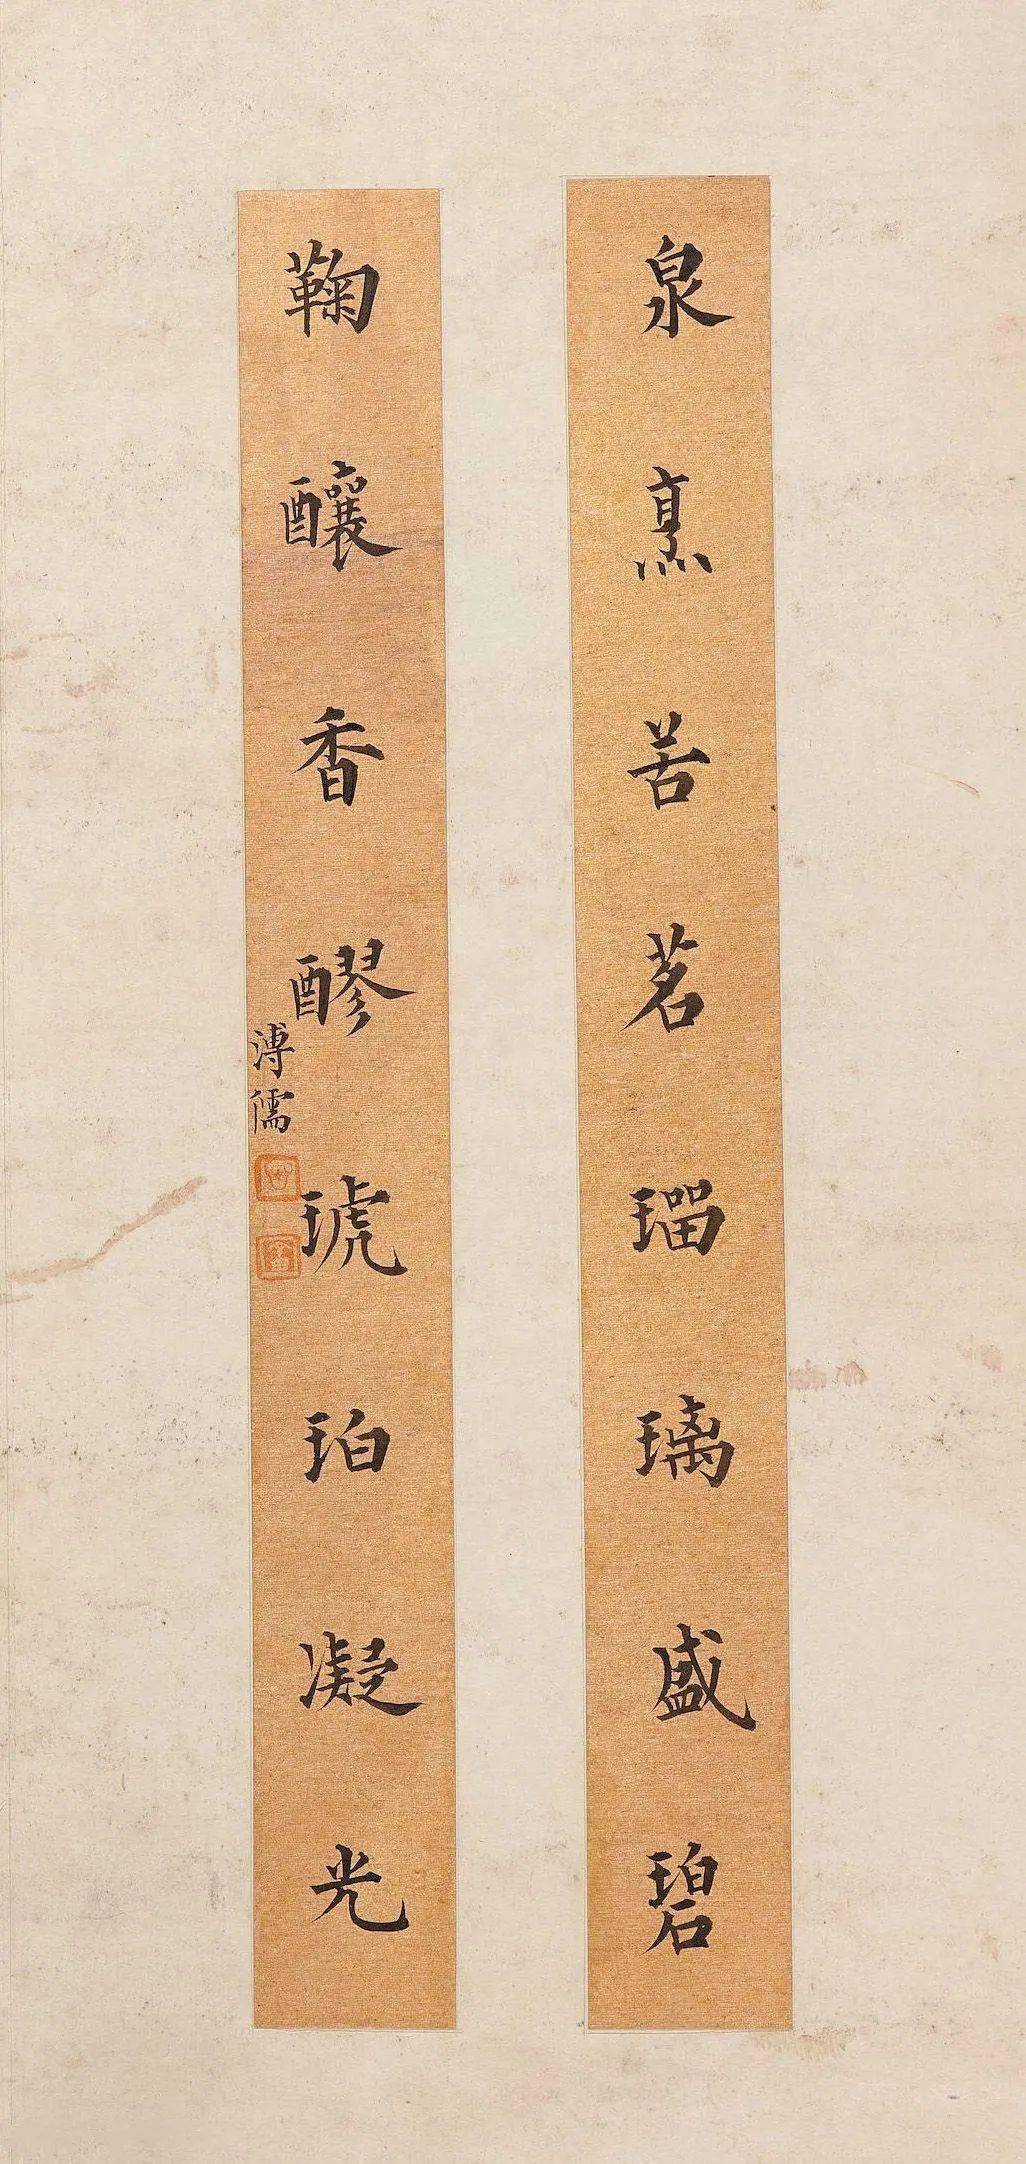 泉烹苦茗瑠璃盛碧
鞠釀香醪琥珀凝光
溥儒